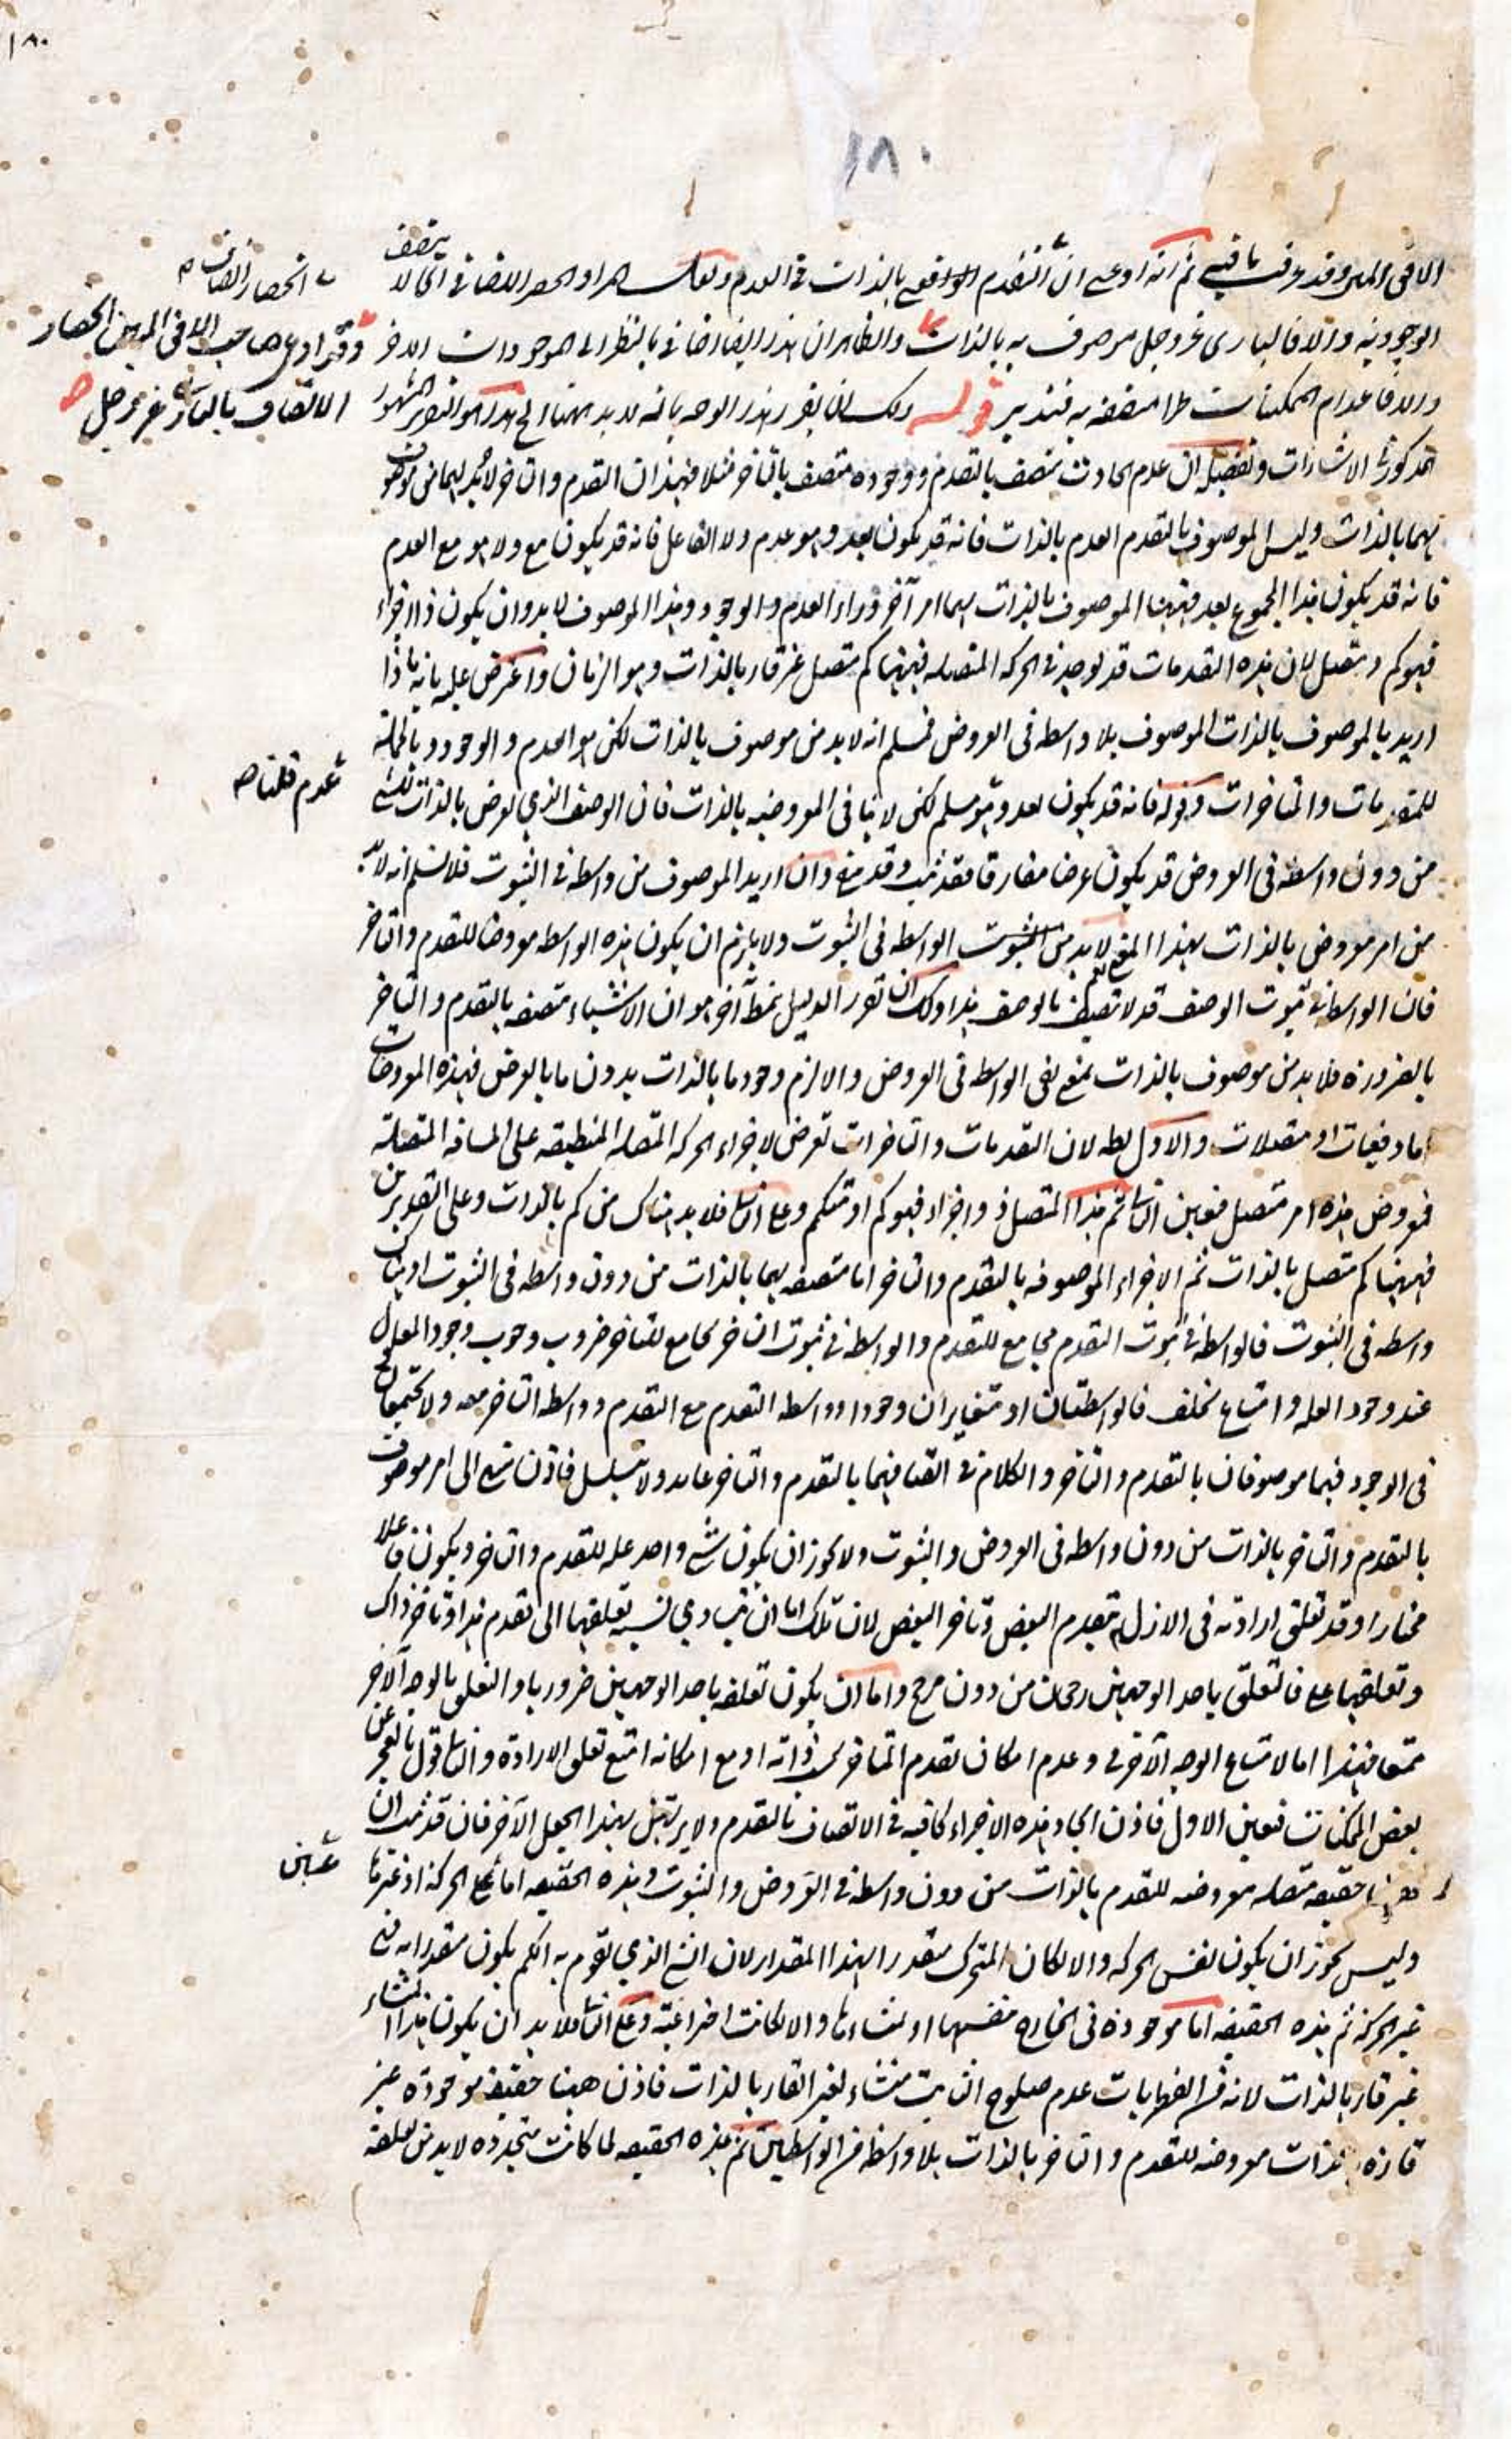 ١٨٠
١٨٠
الافق المبين وقد عرفت ما فيه ثم انه ادعى ان التقدم الواقع بالذات في العدم ولعل المراد الحصر الاضافي اي لا يتصف
الوجود به والا فالباري عز وجل موصوف به بالذات والظاهر ان هذا ايضا اضافي بالنظر الى الموجودات الاخر
والا فاعدام الممكنات طرا متصفة به فتدبر قوله ولك ان تقرر هذا الوجه بانه لا بد ههنا الخ هذا هو التقرير المشهور
المذكور في الاشارات وتفصيله ان عدم الحادث متصف بالتقدم ووجوده متصف بالتاخر مثلا فهذان التقدم والتاخر لا بد لهما من موصوف
بهما بالذات وليس الموصوف بالتقدم العدم بالذات فانه قد يكون بعد وهو عدم ولا الفاعل فانه قد يكون مع ولا هو مع العدم
فانه قد يكون هذا المجموع بعد فههنا الموصوف بالذات بهما امر آخر وراء العدم والوجود وهذا الموصوف لا بد وان يكون ذا اجزاء
فهو كم ومتصل لان هذه التقدمات قد توجد في الحركة المتصلة فههنا كم متصل غير قار بالذات وهو الزمان واعترض عليه بانه ماذا
اريد بالموصوف بالذات الموصوف بلا واسطة في العروض فمسلم انه لا بد من موصوف بالذات لكن هو العدم والوجود وبالجملة
للمتقدمات والمتاخرات وقوله فانه قد يكون بعد وهو مسلم لكن لا ينافي المعروضية بالذات فان الوصف الذي يعرض بالذات للشيء
من دون واسطة في العروض قد يكون عرضا مفارقا فقد ثبت وقد منع وان اريد الموصوف من واسطة في الثبوت فلا نسلم انه لا بد
من امر معروض بالذات بهذا المنع نعم لا بد من الثبوت الواسطة في الثبوت ولا يلزم ان يكون هذه الواسطة معروضا للتقدم والتاخر
فان الواسطة في ثبوت الوصف قد لا تتصف بالوصف هذا ولك ان تقرر الدليل بنمط آخر هو ان الاشياء متصفة بالتقدم والتاخر
بالضرورة فلا بد من موصوف بالذات بمعنى نفي الواسطة في العروض والا لزم وجود ما بالذات بدون ما بالعرض فهذه المعروضات
اما دفعيات او متصلات والاول بط لان التقدمات والتاخرات تعرض لاجزاء الحركة المتصلة المنطبقة على المسافة المتصلة
فمعروض هذه امر متصل فعين الثاني ثم هذا المتصل ذو اجزاء فهو كم او متكمم وعلى الثاني فلا بد هناك من كم بالذات وعلى التقديرين
فههنا كم متصل بالذات ثم الاجزاء الموصوفة بالتقدم والتاخر اما متصفة بهما بالذات من دون واسطة في الثبوت او هناك
واسطة في الثبوت فالواسطة في ثبوت التقدم مجامع للتقدم والواسطة في ثبوت التاخر مجامع للتاخر ضرورة وجوب وجود المعلول
عند وجود العلة وامتناع تخلف فالواسطتان او متغايران وجودا وواسطة التقدم مع التقدم وواسطة التاخر معه ولا تجتمعان
في الوجود فهما موصوفان بالتقدم والتاخر والكلام في اتصافهما بالتقدم والتاخر عائد ولا يتسلسل فاذن تنتهي الى امر موصوف
بالتقدم والتاخر بالذات من دون واسطة في العروض والثبوت ولا يجوز ان يكون شيء واحد علة للتقدم والتاخر ويكون فاعلا
مختارا وقد تعلق ارادته في الازل بتقدم البعض وتاخر البعض لان تلك اما ان تتساوي نسبة تعلقها الى تقدم هذا وتاخر ذاك
وتعلقها على فالتعلق باحد الوجهين رجحان من دون مرجح واما ان يكون تعلقه باحد الوجهين ضروريا والتعلق بالوجه الآخر
ممتنعا فهذا اما لامتناع الوجه الآخر في وعدم امكان تقدم المتاخر في ذاته او مع امكانه امتنع تعلق الارادة والثاني قول بالعجز عن
بعض الممكنات فعين الاول فاذن ايجاد هذه الاجزاء كافية في الاتصاف بالتقدم ولا يرتهن بهذا الجعل الآخر فان قد ثبت ان
حقيقة متصلة معروضة للتقدم بالذات من دون واسطة في العروض والثبوت وهذه الحقيقة اما الحركة او غيرها
وليس يجوز ان يكون لنفس الحركة والا لكان المتحرك متقدرا لهذا المقدار لان الشيء الذي تقوم به الكم يكون متقدرا به فهي
غير الحركة ثم هذه الحقيقة اما موجودة في الخارج بنفسها او بمنشاءها والا لكانت اختراعية وعلى الثاني فلا بد ان يكون هذا المنشاء
غير قار بالذات لانه في الضروريات عدم صلوح الثابت منشاء لغير القار بالذات فاذن ههنا حقيقة موجودة غير
قارة بالذات معروضة للتقدم والتاخر بالذات بلا واسطة من الواسطتين ثم هذه الحقيقة لما كانت متجددة لا بد من
انحصار اتصاف
وقد ادعى صاحب الافق المبين انحصار
الاتصاف بالباري عز وجل
عدم قلنا